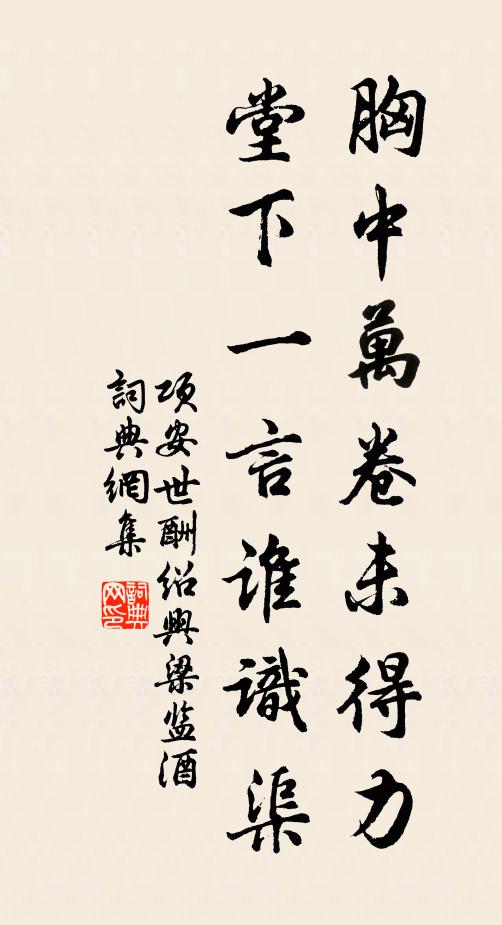 胸中萬卷未得力
堂下一言誰識渠
項安世酬绍興梁监酒
詞典網集
詞典
网印